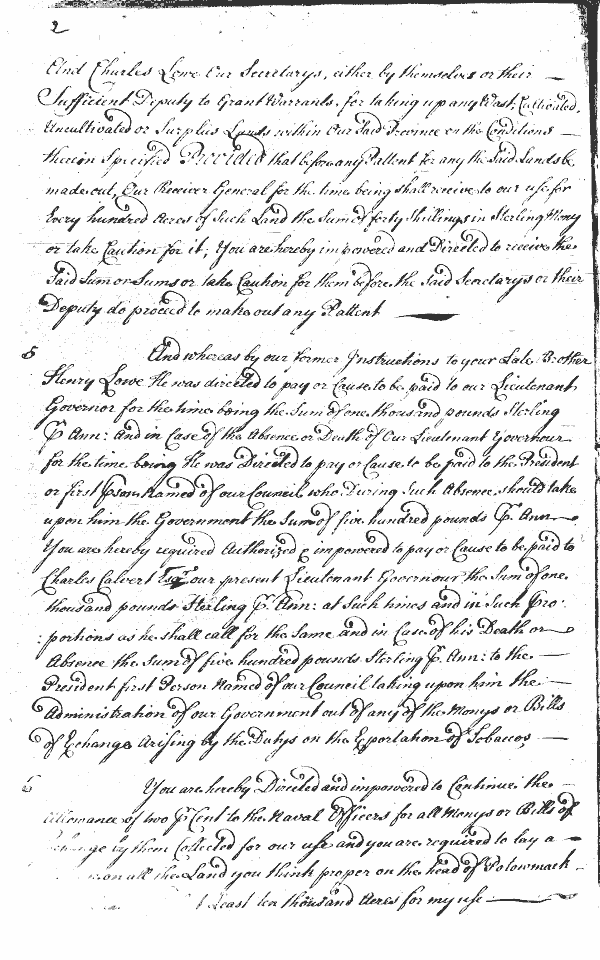 2
And Charles Lowe Our Secretarys, either by themselves or their
Sufficient Deputy to Grant Warrants, for taking up any Vast, Cultivated,
Uncultivated or Surplus Lands within Our Said Province on the Conditions
therein Specified Provided that before any Pattent for any the Said Lands be
made out, Our Receiver General for the time being shall receive to our use for
Every hundred Acres of Such Land the Sum of forty Shillings in Sterling Mony
or take Caution for it; You are hereby impowered and Directed to receive the
Said Sum or Sums or take Caution for them before the Said Secretarys or their
Deputy do proceed to make out any Pattent
5 And whereas by our former Instructions to your Late Brother
Henry Lowe He was directed to pay or Cause to be paid to our Lieutenant
Governor for the time being the Sum of one thousand pounds Sterling
P. Ann: And in Case of the Absence or Death of Our Lieutenant Governour
for the time being He was Directed to pay or Cause to be paid to the President
or first Pson Named of our Council who During Such Absence should take
upon him the Government the Sum of five hundred pounds P. Ann
You are hereby required Authorized & impowered to pay or Cause to be paid to
Charles Calvert Esqr our present Lieutenant Governour the Sum of one
thousand pounds Sterling P. Ann: at Such times and in Such Pro:
:portions as he shall call for the Same and in Case of his Death or
Absence the Sum of five hundred pounds Sterling P. Ann: to the
President first Person Named of our Council taking upon him the
Administration of our Government out of any of the Monys or Bills
of Exchange Arising by the Dutys on the Exportation of Tobaccos
6 You are hereby Directed and impowered to Continue the
Allowance of two P Cent to the Naval Officers for all Monys or Bills of
by them Collected for our use and you are required to lay a
on all the Land you think proper on the head of Potowmack
Least ten thousand Acres for my use